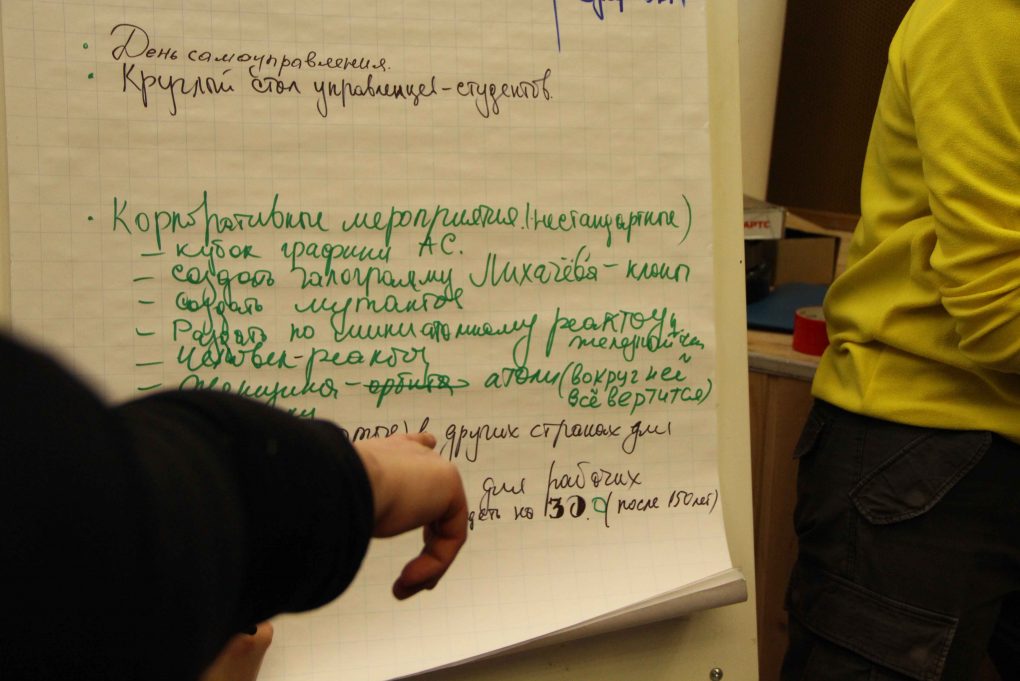 День самоуправления.
Круглый стол управленцев-студентов.
Корпоративные мероприятия (нестандартные)
– кубок графики АС.
– создать галограмму Лихачёва-клон
– создать мутантов
– Раздать по мини атомному реактору
– Человек-реактор
– Женщина-орбита атом (вокруг неё
всё вертится)
в других странах для
для рабочих
на 30. (после 150 лет)
АРТС